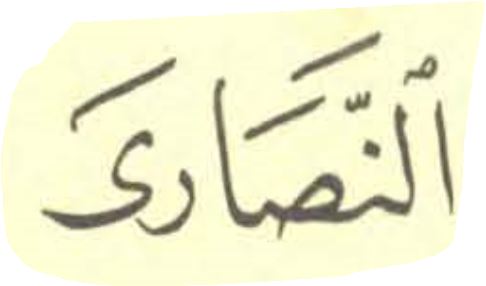 ٱلنَّصَارَى